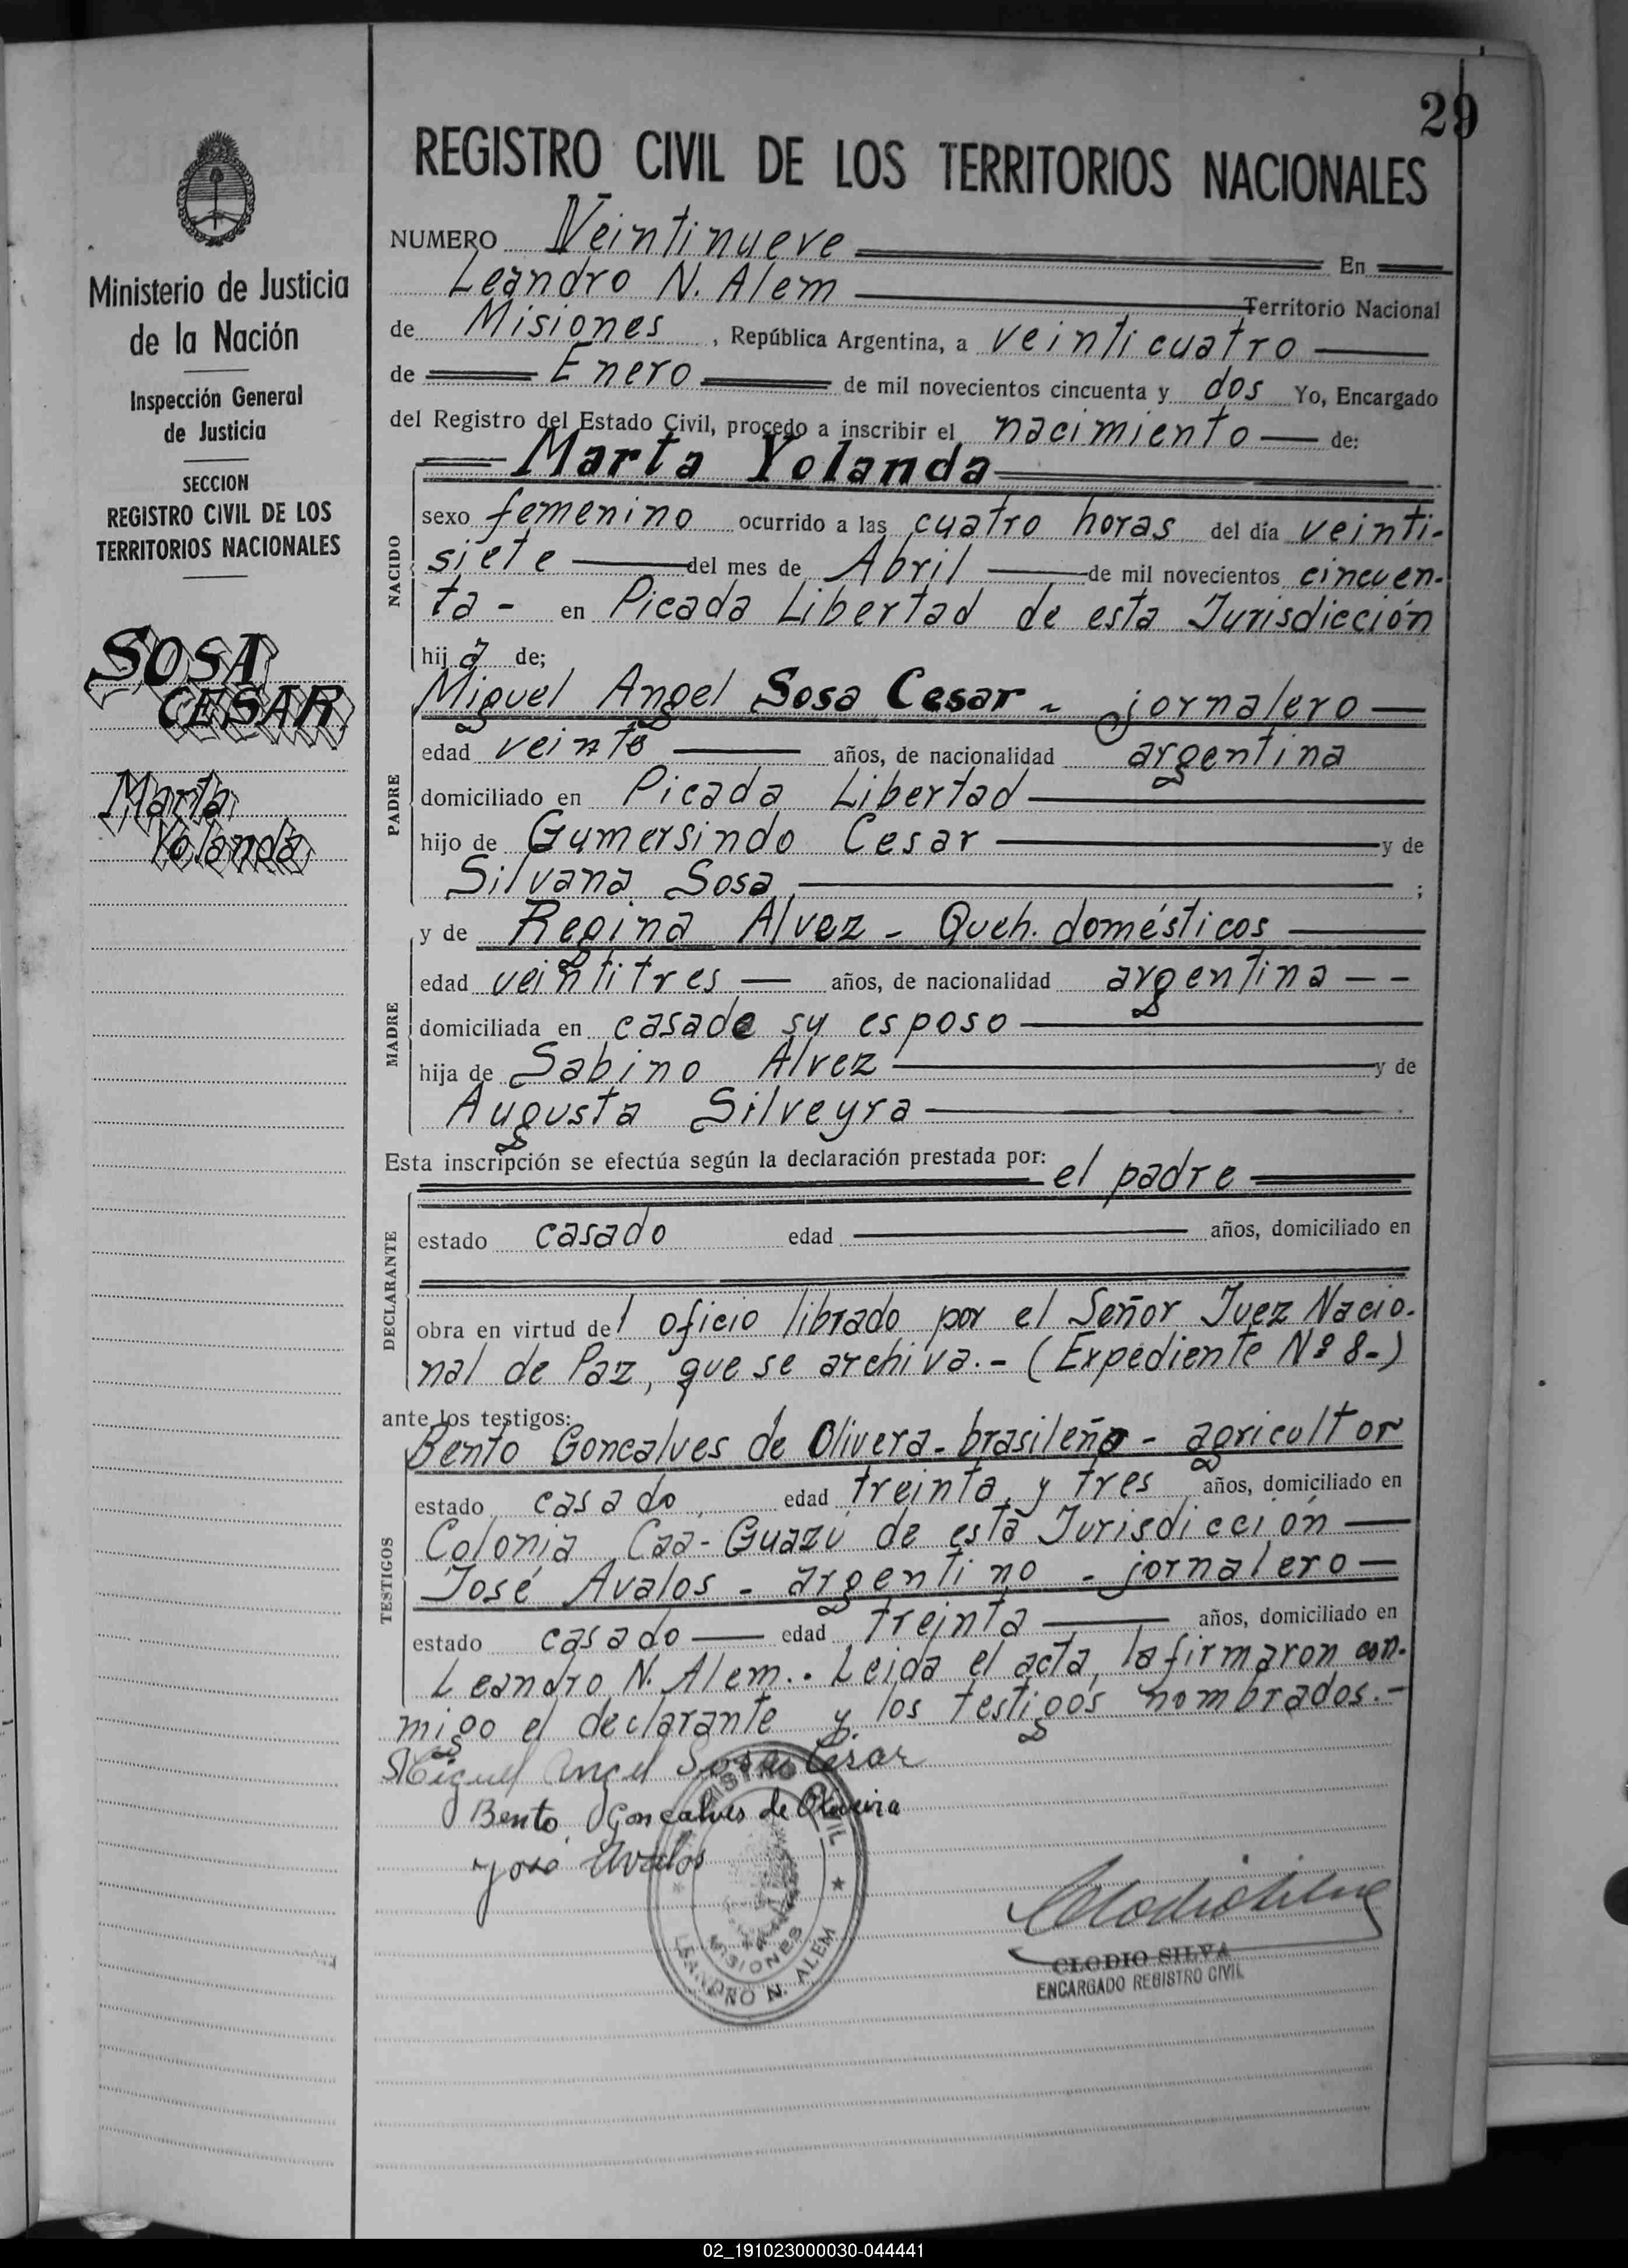 29
REGISTRO CIVIL DE LOS TERRITORIOS NACIONALES
Ministerio de Justicia
de la Nación
Inspección General
de Justicia
SECCION
REGISTRO CIVIL DE LOS
TERRITORIOS NACIONALES
SOSA
CESAR
Marta
Yolanda
NUMERO Veintinueve En
Leandro N. Alem Territorio Nacional
de Misiones, República Argentina, a veinticuatro
de Enero de mil novecientos cincuenta y dos Yo, Encargado
del Registro del Estado Civil, procedo a inscribir el nacimiento de:
Marta Yolanda
NACIDO
sexo femenino ocurrido a las cuatro horas del día veinti-
siete del mes de Abril de mil novecientos cincuen-
ta - en Picada Libertad de esta Jurisdicción
hija de;
PADRE
Miguel Angel Sosa Cesar - jornalero
edad veinte años, de nacionalidad argentina
domiciliado en Picada Libertad
hijo de Gumersindo Cesar y de
Silvana Sosa ;
MADRE
y de Regina Alvez - Queh. domésticos
edad veintitres años, de nacionalidad argentina - -
domiciliada en casa de su esposo
hija de Sabino Alvez y de
Augusta Silveyra .
Esta inscripción se efectúa según la declaración prestada por:
el padre
DECLARANTE
estado casado edad años, domiciliado en
obra en virtud del oficio librado por el Señor Juez Nacio-
nal de Paz, que se archiva.- (Expediente Nº 8-)
ante los testigos:
TESTIGOS
Bento Goncalves de Olivera - brasileño - agricultor
estado casado edad treinta y tres años, domiciliado en
Colonia Caa-Guazú de esta Jurisdicción
José Avalos - argentino - jornalero
estado casado edad treinta años, domiciliado en
Leandro N. Alem.. Leida el acta, la firmaron con-
migo el declarante y los testigos nombrados.-
Miguel Angel Sosa Cesar
Bento Goncalves de Oliveira
José Avalos
REGISTRO CIVIL
MISIONES
LEANDRO N. ALEM
Clodio Silva
CLODIO SILVA
ENCARGADO REGISTRO CIVIL
02_191023000030-044441